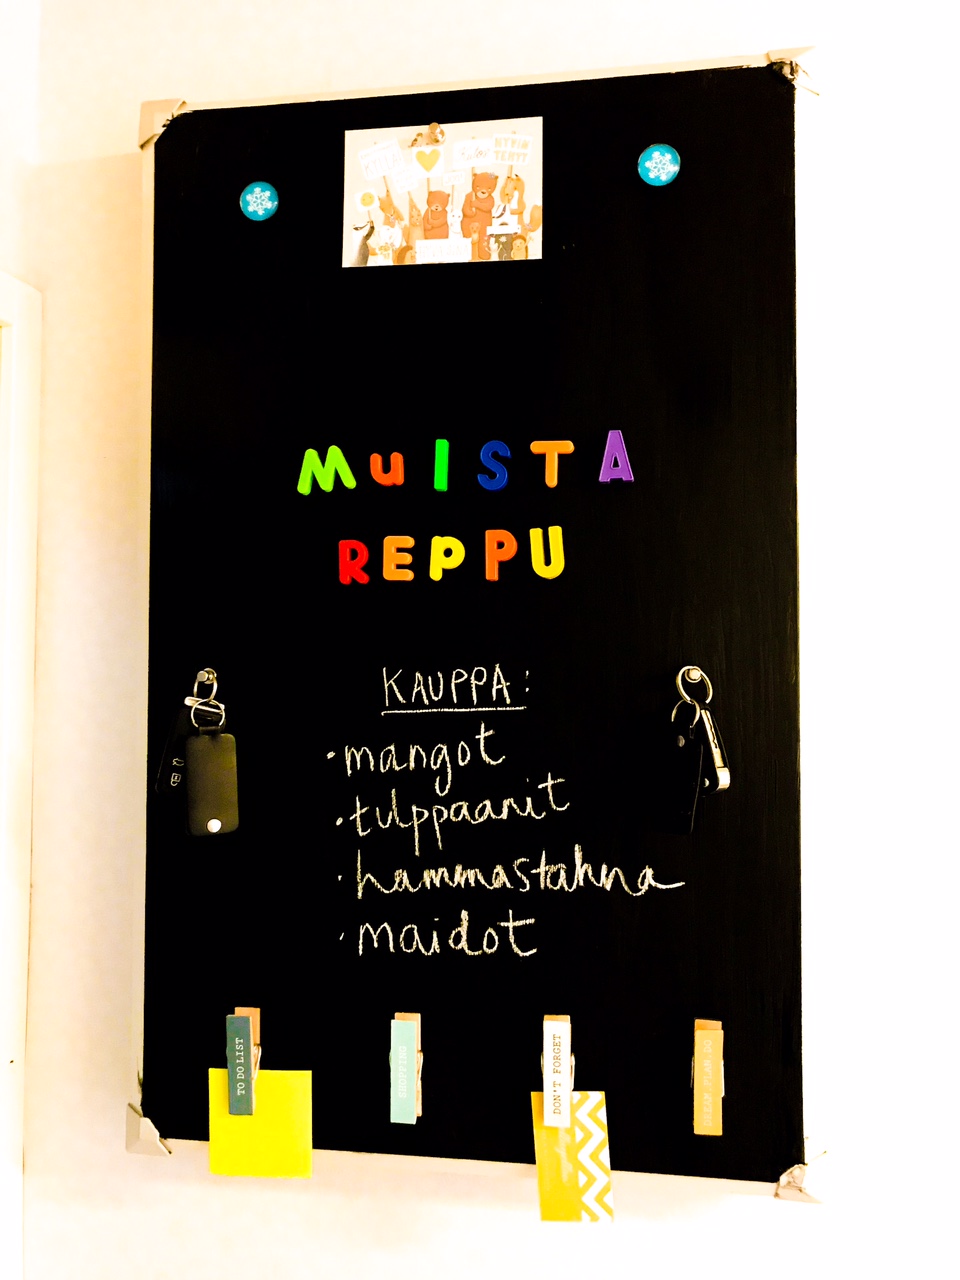 MuISTA
REPPU
KAUPPA:
• mangot
• tulppaanit
• hammastahna
• maidot
TO DO LIST
SHOPPING
DON'T FORGET
DREAM.PLAN.DO